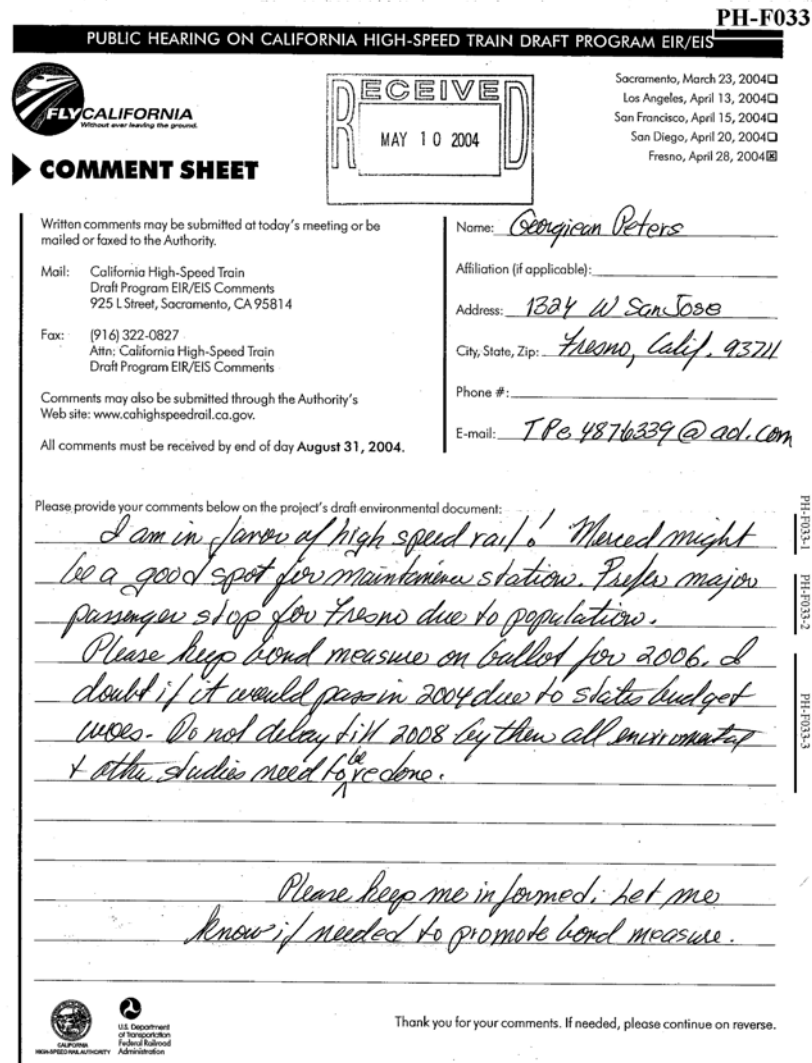 PH-F033
PUBLIC HEARING ON CALIFORNIA HIGH-SPEED TRAIN DRAFT PROGRAM EIR/EIS
FLY CALIFORNIA
Without ever leaving the ground.
COMMENT SHEET
RECEIVED
MAY 10 2004
Sacramento, March 23, 2004☐
Los Angeles, April 13, 2004☐
San Francisco, April 15, 2004☐
San Diego, April 20, 2004☐
Fresno, April 28, 2004☒
Written comments may be submitted at today's meeting or be
mailed or faxed to the Authority.
Mail: California High-Speed Train
Draft Program EIR/EIS Comments
925 L Street, Sacramento, CA 95814
Fax: (916) 322-0827
Attn: California High-Speed Train
Draft Program EIR/EIS Comments
Comments may also be submitted through the Authority's
Web site: www.cahighspeedrail.ca.gov.
All comments must be received by end of day August 31, 2004.
Name: Georgiean Peters
Affiliation (if applicable):
Address: 1324 W San Jose
City, State, Zip: Fresno, Calif. 93711
Phone #:
E-mail: TPe4876339@aol.com
Please provide your comments below on the project's draft environmental document:
I am in favor of high speed rail! Merced might
be a good spot for maintainence station. Prefer major
passenger stop for Fresno due to population.
Please keep bond measure on ballot for 2006. I
doubt if it would pass in 2004 due to states budget
woes. Do not delay till 2008 by then all enviromental
+ other studies need to be redone.
Please keep me informed. Let me
know if needed to promote bond measure.
PH-F033-1
PH-F033-2
PH-F033-3
CALIFORNIA
HIGH-SPEED RAIL AUTHORITY
U.S. Department
of Transportation
Federal Railroad
Administration
Thank you for your comments. If needed, please continue on reverse.